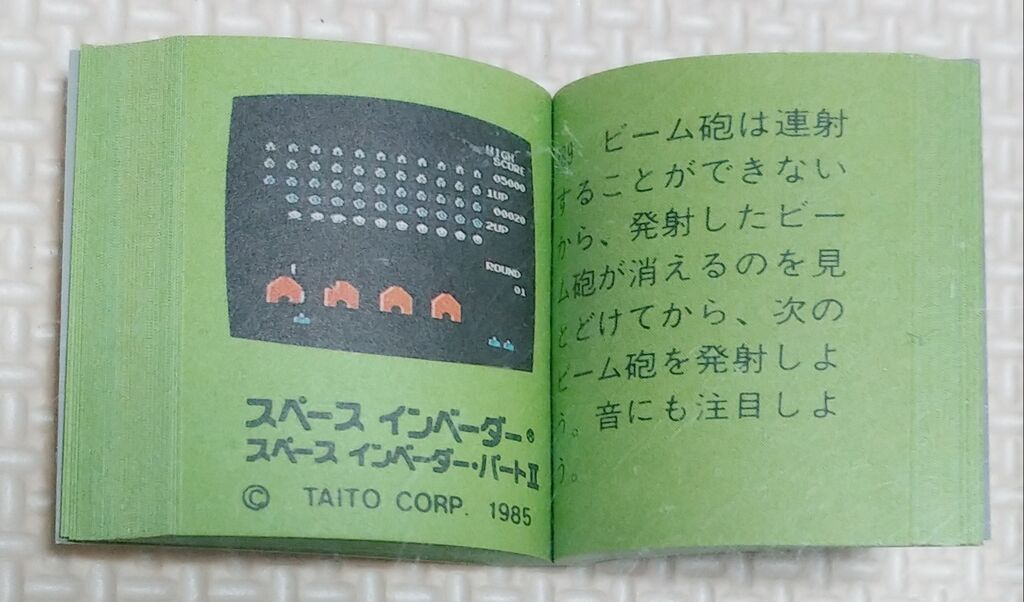 HIGH
SCORE
05000
1UP
00020
2UP
ROUND
01
スペース インベーダー®
スペース インベーダー・パートⅡ
© TAITO CORP. 1985
ビーム砲は連射
することができない
から、発射したビー
ム砲が消えるのを見
とどけてから、次の
ビーム砲を発射しよ
う。音にも注目しよ
う。